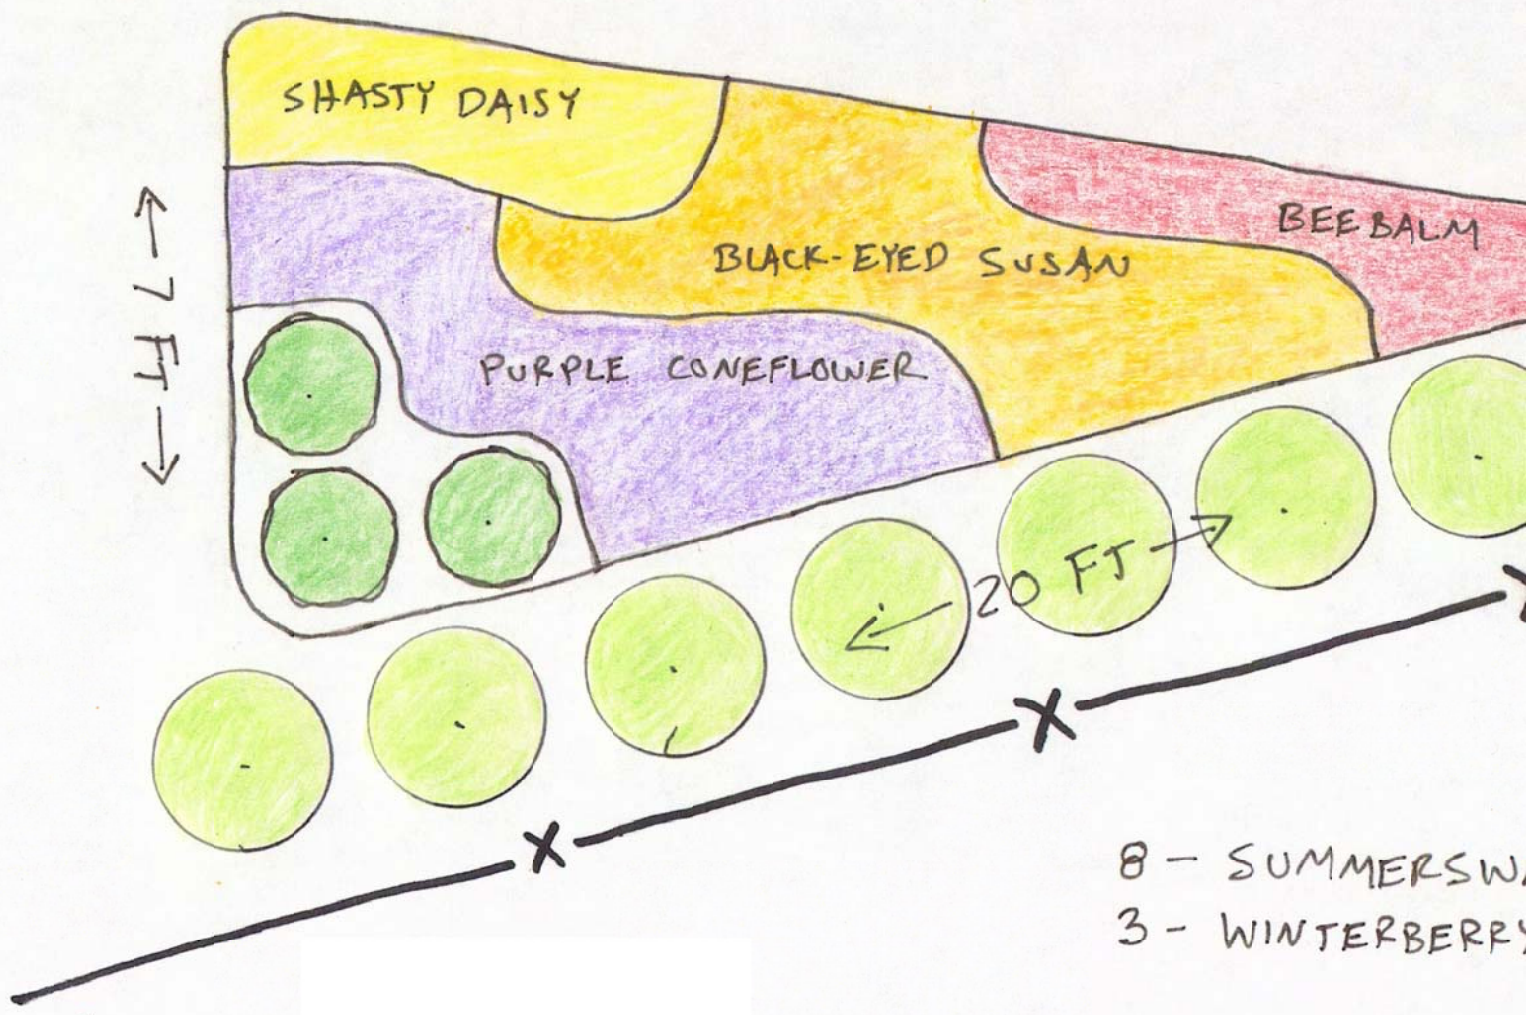 SHASTY DAISY
BLACK-EYED SUSAN
BEE BALM
PURPLE CONEFLOWER
7 FT
20 FT
8 - SUMMERSW
3 - WINTERBERRY